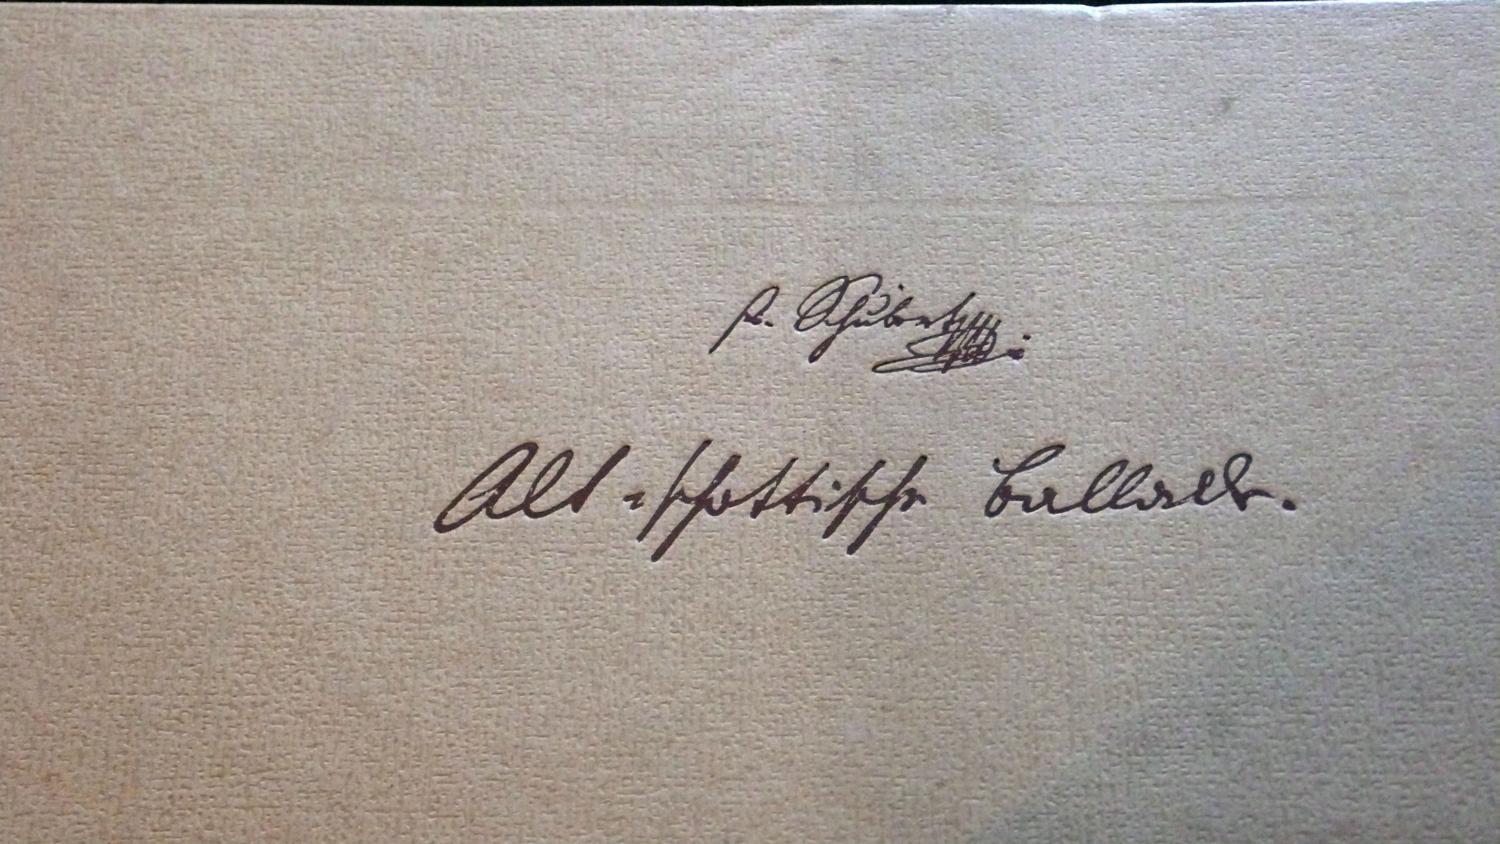 Fr. Schubert
Alt-schottische Ballade.